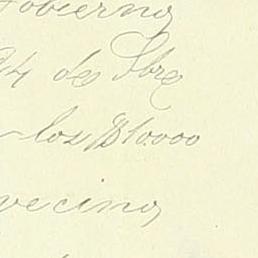 Gobierno
24 de 8bre
los $10.000
vecino